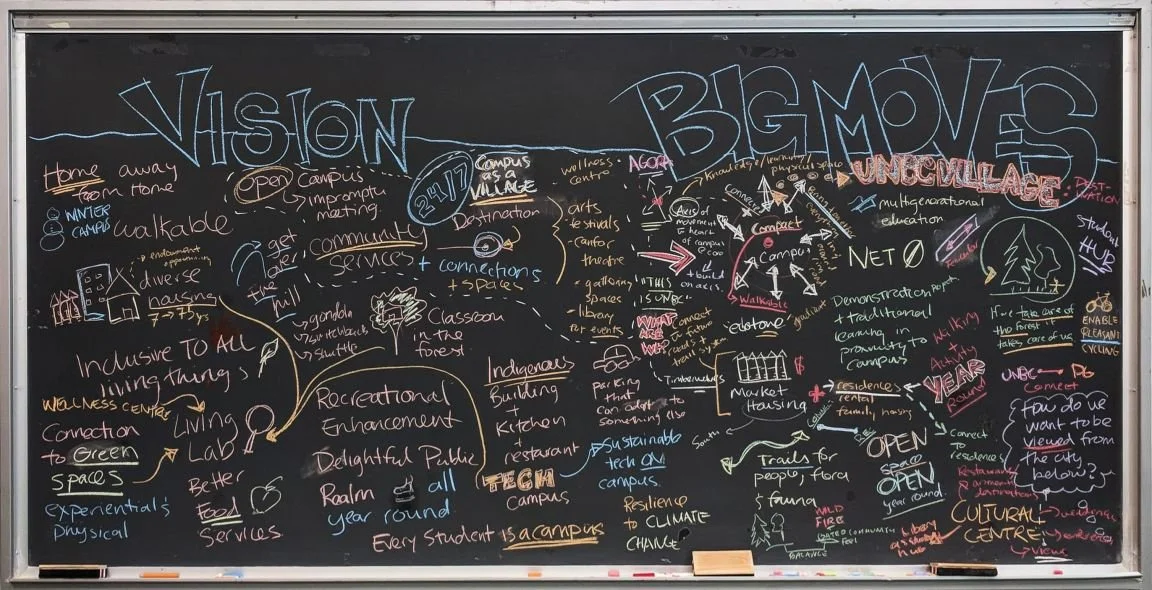 VISION
Home away
from Home
WINTER
CAMPUS
walkable
open Campus
impromptu
meeting.
24/7
Campus
as a
VILLAGE
Destination
+ connections
+ spaces
wellness
centre
arts
festivals
theatre
- gathering
spaces
- library
for events
get
over
the
hill
community
services
gondola
shuttle
diverse
housing
7-75 yrs
Inclusive TO ALL
living things
Classroom
in the
forest
WELLNESS CENTRE
Living
Lab
Connection
to Green
spaces
experiential &
physical
Better
Food
Services.
Recreational
Enhancement
Delightful Public
Realm all
year round.
Every Student is a campus
Indigenous
Building
+
Kitchen
+
restaurant
TECH
campus
sustainable
tech ON
campus.
Resilience
to CLIMATE
CHANGE
parking
that
can adapt to
something else
BIG MOVES
AGORA
Knowledge/learning/
physical space
UNBC VILLAGE
DEST-
INATION
Axis of
movement
to heart
of campus
+ build
on axis.
Compact
Campus
Walkable
"THIS
IS UNBC"
WHAT
ARE
WE?
Connect
to future
roads +
trail system
"edotone"
gradient
multigenerational
education
NET Ø
STUDENT
HUB
Demonstration Project
+ traditional
learning in
proximity to
campus
If we take care of
the forest it
takes care of us.
ENABLE
PLEASANT
CYCLING
Walking
+
Activity
YEAR
Round
UNBC PG
Connect
How do we
want to be
viewed from
the city
below?
Market
Housing
$
residences
rental
family, housing
South
Trails for
people, flora
& fauna
OPEN
space
OPEN
year round.
Connect
to
residences
Restaurant
destination
WILD
FIRE
BALANCE
library
as a study
hub
CULTURAL
CENTRE
weddings
views